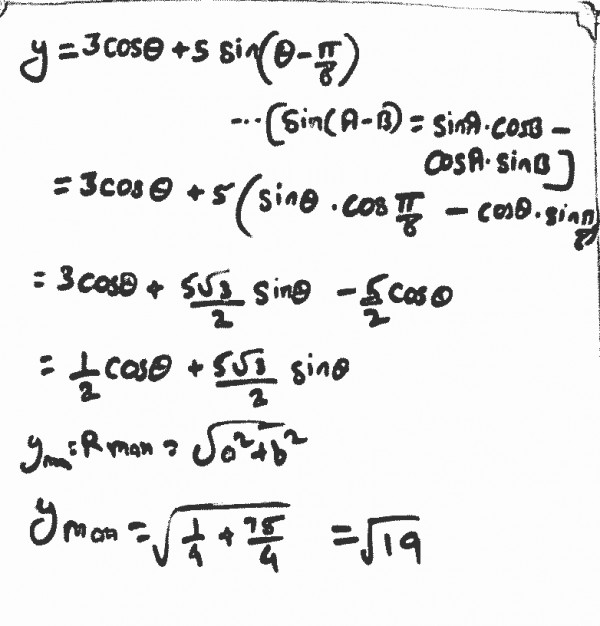 y = 3cosθ + 5 sin(θ - π/6)
...[sin(A-B) = sinA·cosB -
cosA·sinB]
= 3cosθ + 5(sinθ · cos π/6 - cosθ · sin π/6
= 3cosθ + 5√3/2 sinθ - 5/2 cosθ
= 1/2 cosθ + 5√3/2 sinθ
y max = R max = √(a² + b²)
y max = √(1/4 + 75/4) = √19